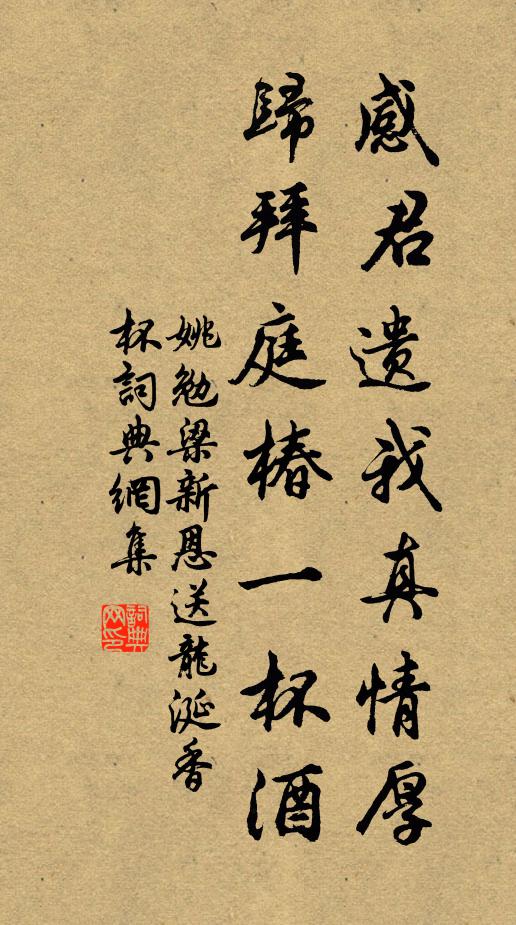 感君遗我真情厚
歸拜庭椿一杯酒
姚勉梁新恩送龍涎香
杯詞典網集
詞典网印